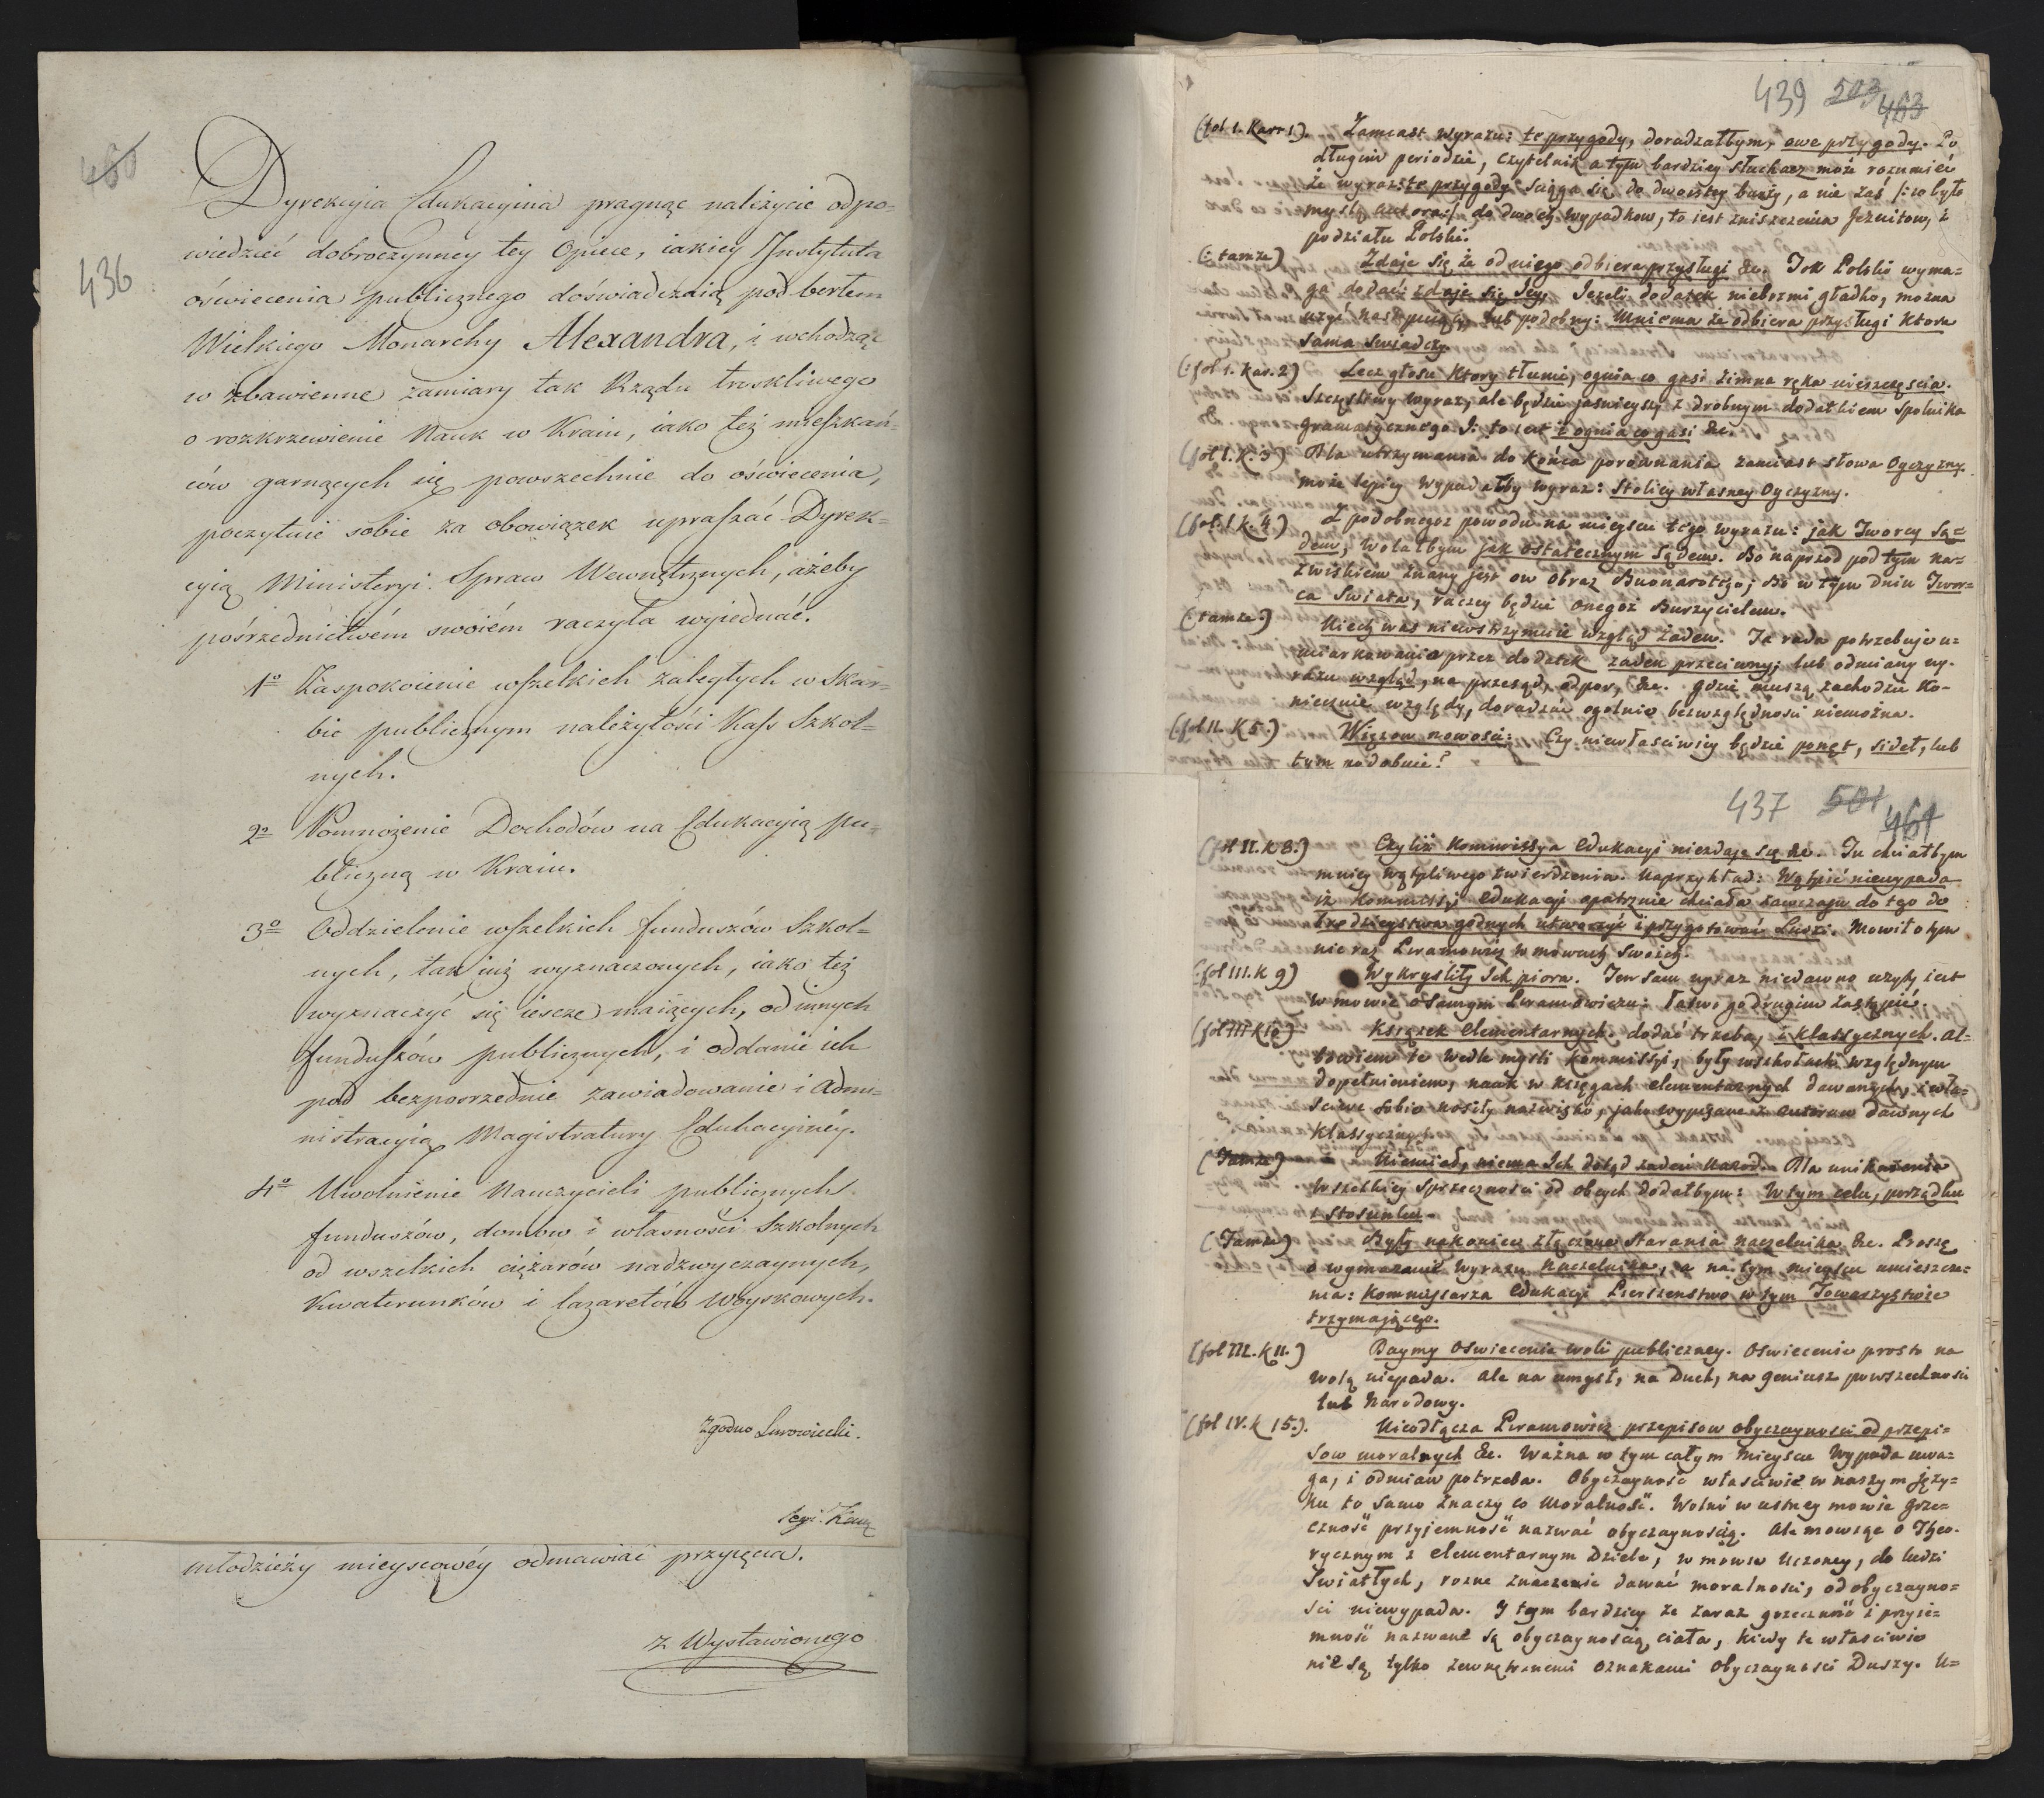 460
436
Dyrekcyia Edukacyina pragnąc należycie odpo=
wiedzieć dobroczynney tey Opiece, iakiey Instytuta
oświecenia publicznego doświadczaią pod berłem
Wielkiego Monarchy Alexandra, i wchodząc
w zbawienne zamiary tak Rządu troskliwego
o rozkrzewienie Nauk w Kraiu, iako też mieszkań=
ców garnących się powszechnie do oświecenia,
poczytuie sobie za obowiązek upraszać Dyrek=
cyią Ministeryi Spraw Wewnętrznych, ażeby
pośrzednictwém swoiém raczyła wyiednać.
1º Zaspokoienie wszelkich zaległych w Skar=
bie publicznym należytości Kass Szkol=
nych.
2º Pomnożenie Dochodów na Edukacyią pu=
bliczną w Kraiu.
3º Oddzielenie wszelkich funduszów Szkol=
nych, tak iuż wyznaczonych, iako też
wyznaczyć się iescze maiących, od innych
funduszów publicznych, i oddanie ich
pod bezpośrzednie zawiadowanie i Admi=
nistracyią Magistratury Edukacyinéy.
4º Uwolnienie Nauczycieli publicznych
funduszów, domów i własności Szkolnych
od wszelkich ciężarów nadzwyczaynych,
Kwaterunków i lazaretów Woyskowych.
Zgodno Surowiecki.
młodzieży mieyscowéy odmawiać przyięcia.
z Wystawionego
439 503 463
(fol 1. Kart 1.) Zamiast wyrazu: te przygody, doradzałbym, owe przygody. Po
długim periodzie, czytelnik a tym bardziey słuchacz może rozumieć
że wyraz: te przygody sciąga się do dwoistey burzy, a nie zaś /: co było
myslą autora :/ do dwoch wypadkow, to jest zniszczenia Jezuitow, i
podziału Polski.
(: tamże) Zdaje się że od niego odbiera przysługi &c. Tok Polski wyma=
ga dodać: zdaje się Jey. Jeżeli dodatek niebrzmi gładko, można
użyć następuiący lub podobny: Mniema że odbiera przysługi ktore
sama swiadczy.
(: fol 1. Kar. 2) Lecz głosu ktory tłumi, ognia co gasi zimna ręka nieszczęscia.
Szczęsliwy wyraz, ale będzie jasnieyszy z drobnym dodatkiem spolnika
Gramatycznego I: to iest i ognia co gasi &c.
(fol I. K. 3) Dla utrzymania do końca porównania zamiast słowa Oyczyzny
może lepiey wypadałby wyraz: Stolicy własney Oyczyzny.
(fol. I. k. 4) Z podobnegoż powodu na mieyscu tego wyrazu: jak Tworcy Są=
dem, wolałbym jak ostatecznym Sądem. Bo naprzod pod tym na=
zwiskiem znany jest ow obraz Buonarotego; Bo w tym dniu Twor=
ca Swiata, raczey będzie onegoż Burzycielem.
(: tamże.) Niech was niewstrzymuie wzgląd żaden. Ta rada potrzebuje u=
miarkowania przez dodatek żaden przeciwny; lub odmiany wy=
razu wzgląd, na przesąd, odpor, &c. Gdzie muszą zachodzić ko=
niecznie względy, doradzać ogolnie bezwzględnosci niemożna.
(: fol II. K 5.) Więzow nowości: Czy niewłaściwiey będzie ponęt, sideł, lub
tym podobnie?
437 501 461
(fol II. K 8.) Czyliż Kommissya Edukacyi niezdaje się &c. Tu chciałbym
mniey wątpliwego twierdzenia. Naprzykład: Wątpić niewypada
iż Kommissyi Edukacyi opatrznie chciała zawczasu do tego do
brodzieystwa godnych utworzyć i przygotować Ludzi. Mowił o tym
nie raz Piramowicz w mowach swoich.
(: fol III. K 9) Wykryslity Ich piora. Ten sam wyraz niedawno użyty iest
w mowie o samym Piramowiczu. łatwo go drugim zastąpić.
(fol III K 10) Książek Elementarnych. dodać trzeba, i klassycznych. Al=
bowiem te wedle mysli Kommissyi, były w szkołach względnym
dopełnieniem, nauk w Księgach elementarnych dawanych, i wła=
sciwe sobie nosiły nazwisko, jako wypisane z autorow dawnych
Klassycznych.
(Tamże) Niemiał, niema Ich dotąd żaden Narod. Dla uniknienia
wszelkiey sprzeczności od obcych dodałbym: W tym celu, porządku
i stosunku.
(Tamże) Były nakoniec złączone starania Naczelnika &c. Proszę
o wymazanie wyrazu Naczelnika, a na tym mieyscu umieszcze=
nia: Kommissarza Edukacyi Pierszenstwo w tym Towarzystwie
trzymaiącego.
(fol III. K 11.) Daymy Oswiecenie woli publiczney. Oswiecenie prosto na
wolą niepada. Ale na umysł, na Duch, na Geniusz powszechności
lub Narodowy.
(fol IV. K 15.) Nieodłącza Piramowicz przepisow obyczayności od przepi=
sow moralnych &c. Ważna w tym całym mieyscu wypada uwa=
ga, i odmian potrzeba. Obyczayność właściwie w naszym języ=
ku to samo znaczy co moralność. Wolno w ustney mowie grze=
czność przyjemność nazwać obyczaynością. Ale mowiąc o Theo=
rycznym i elementarnym Dziele, w mowie uczoney, do ludzi
Swiatłych, rożne znaczenie dawać moralności, od obyczayno=
ści niewypada. Y tym bardziey że zaraz grzeczność i przyie=
mność nazwane są obyczaynością ciała, kiedy te właściwie
nie są tylko zewnętrznemi oznakami obyczayności Duszy. U=